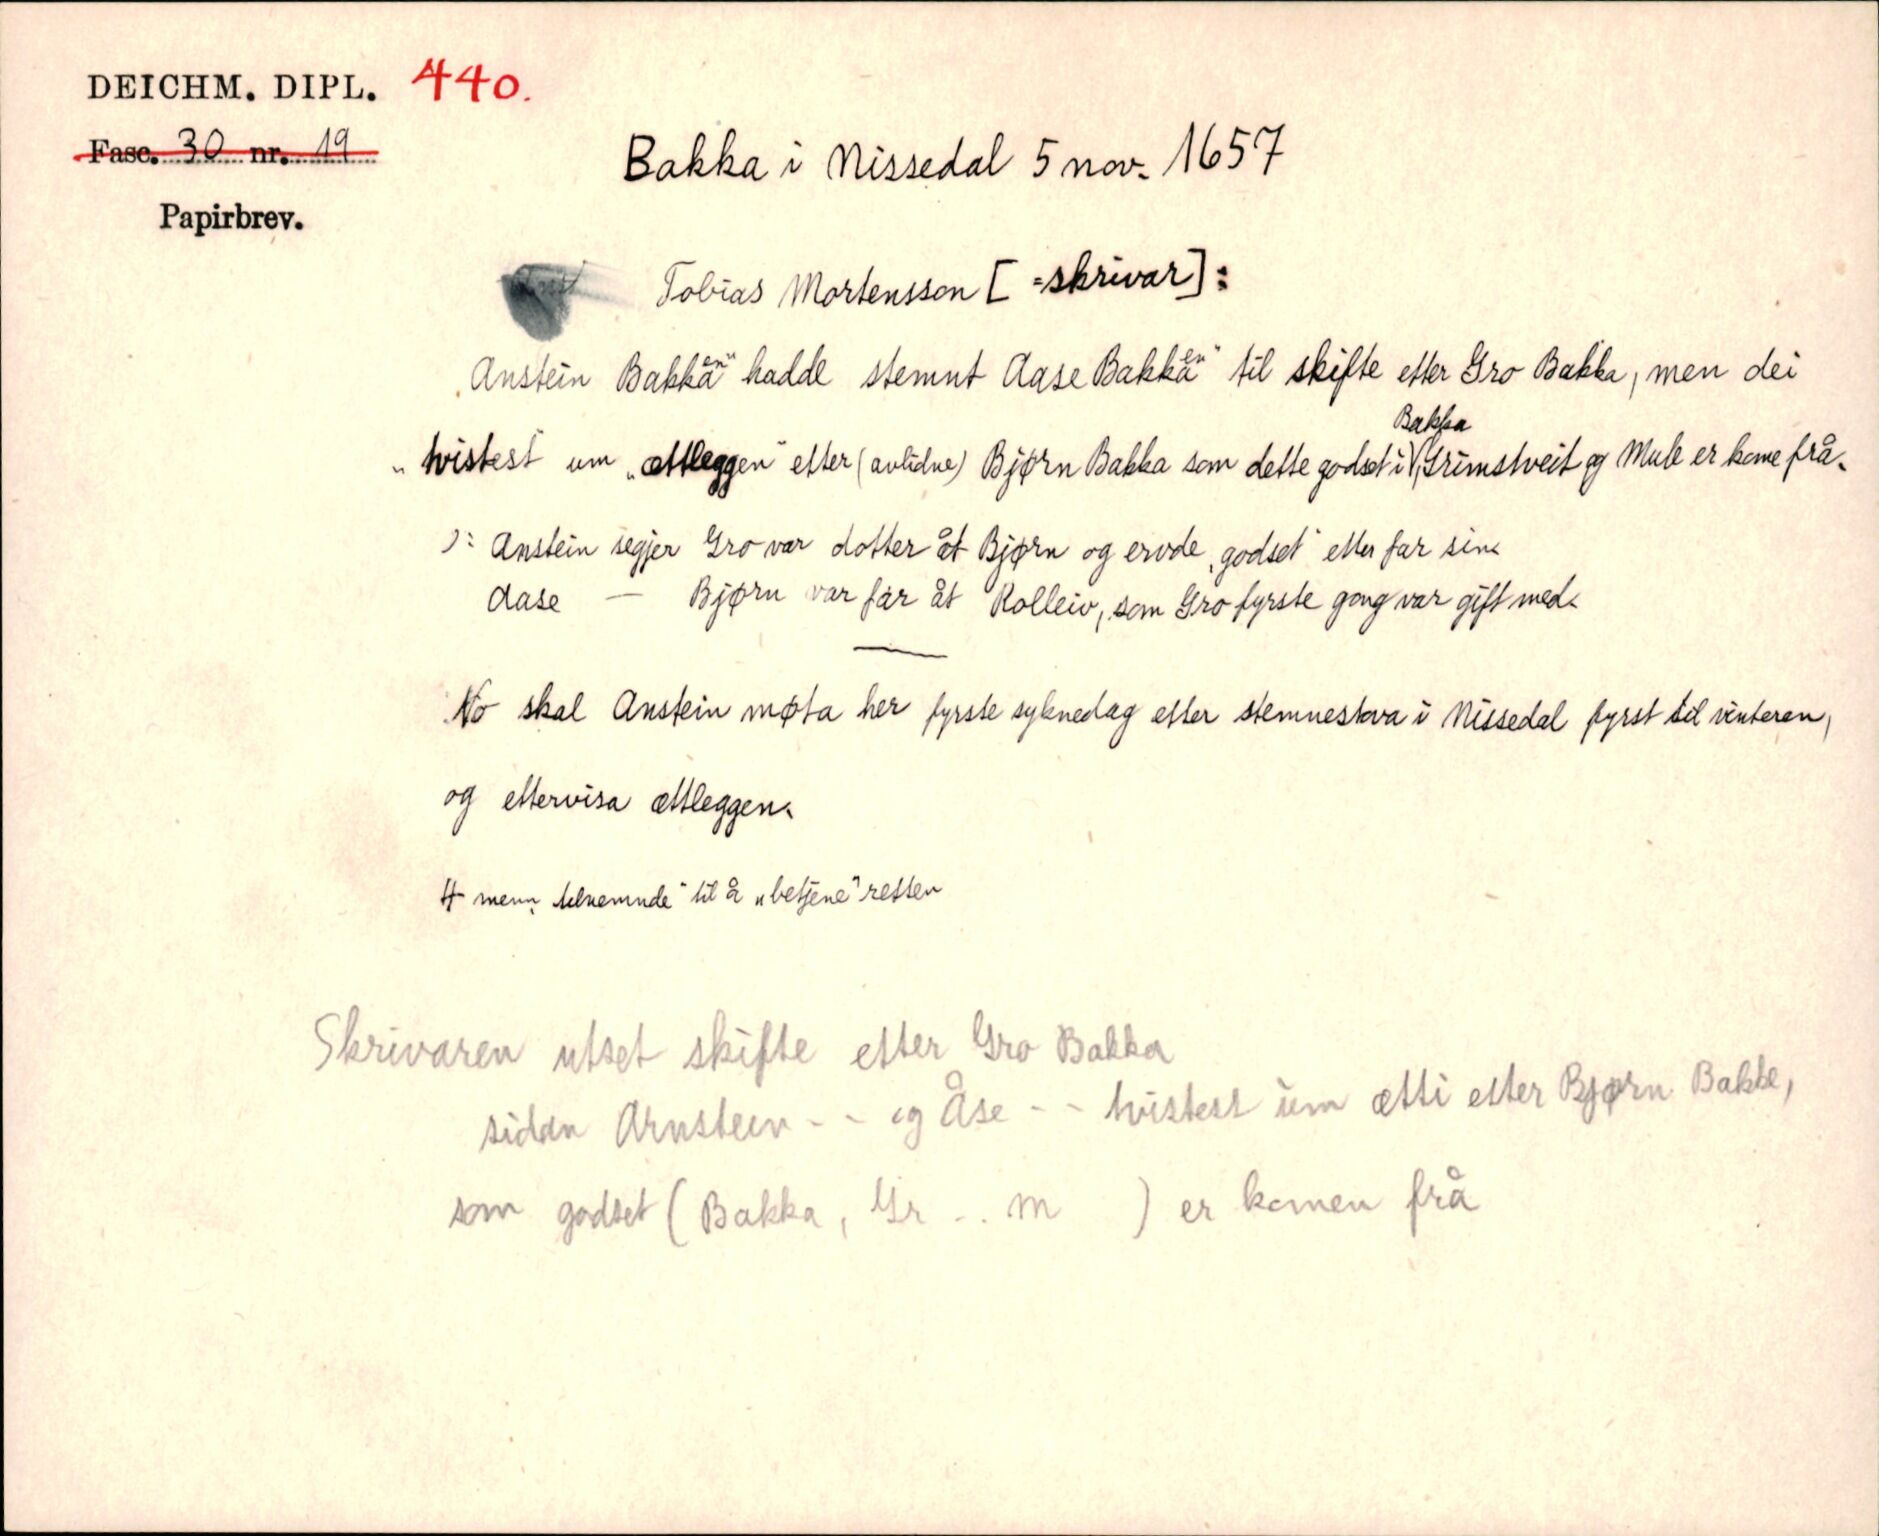 DEICHM. DIPL. 440.
Fasc. 30 nr. 19
Papirbrev.
Bakka i Nissedal 5 nov. 1657
Tobias Mortensson [ =skrivar]:
Anstein Bakkåen" hadde stemnt Aase Bakkåen" til skifte etter Gro Bakka, men dei
"tvistest um "ættleggen" etter (avlidne) Bjørn Bakka som dette godset i Bakka, Grimstveit og Mule er kome frå.
): Anstein segjer Gro var dotter åt Bjørn og ervde "godset" etter far sin.
Aase — Bjørn var far åt Rolleiv, som Gro fyrste gong var gift med.
No skal Anstein møta her fyrste syknedag etter stemnestova i Nissedal fyrst til vinteren,
og ettervisa ættleggen.
4 menn "tilnemnde" til å "betjene" retten
Skrivaren utset skifte etter Gro Bakka
sidan Arnstein - - og Åse - - tvistest um ætti etter Bjørn Bakke,
som godset (Bakka, Gr . . M ) er komen frå